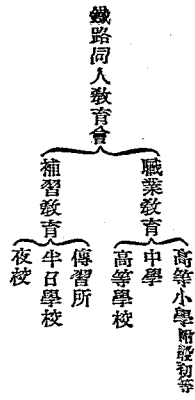 鐵路同人教育會
職業教育
高等小學附設初等
中學
高等學校
補習教育
傳習所
半日學校
夜校